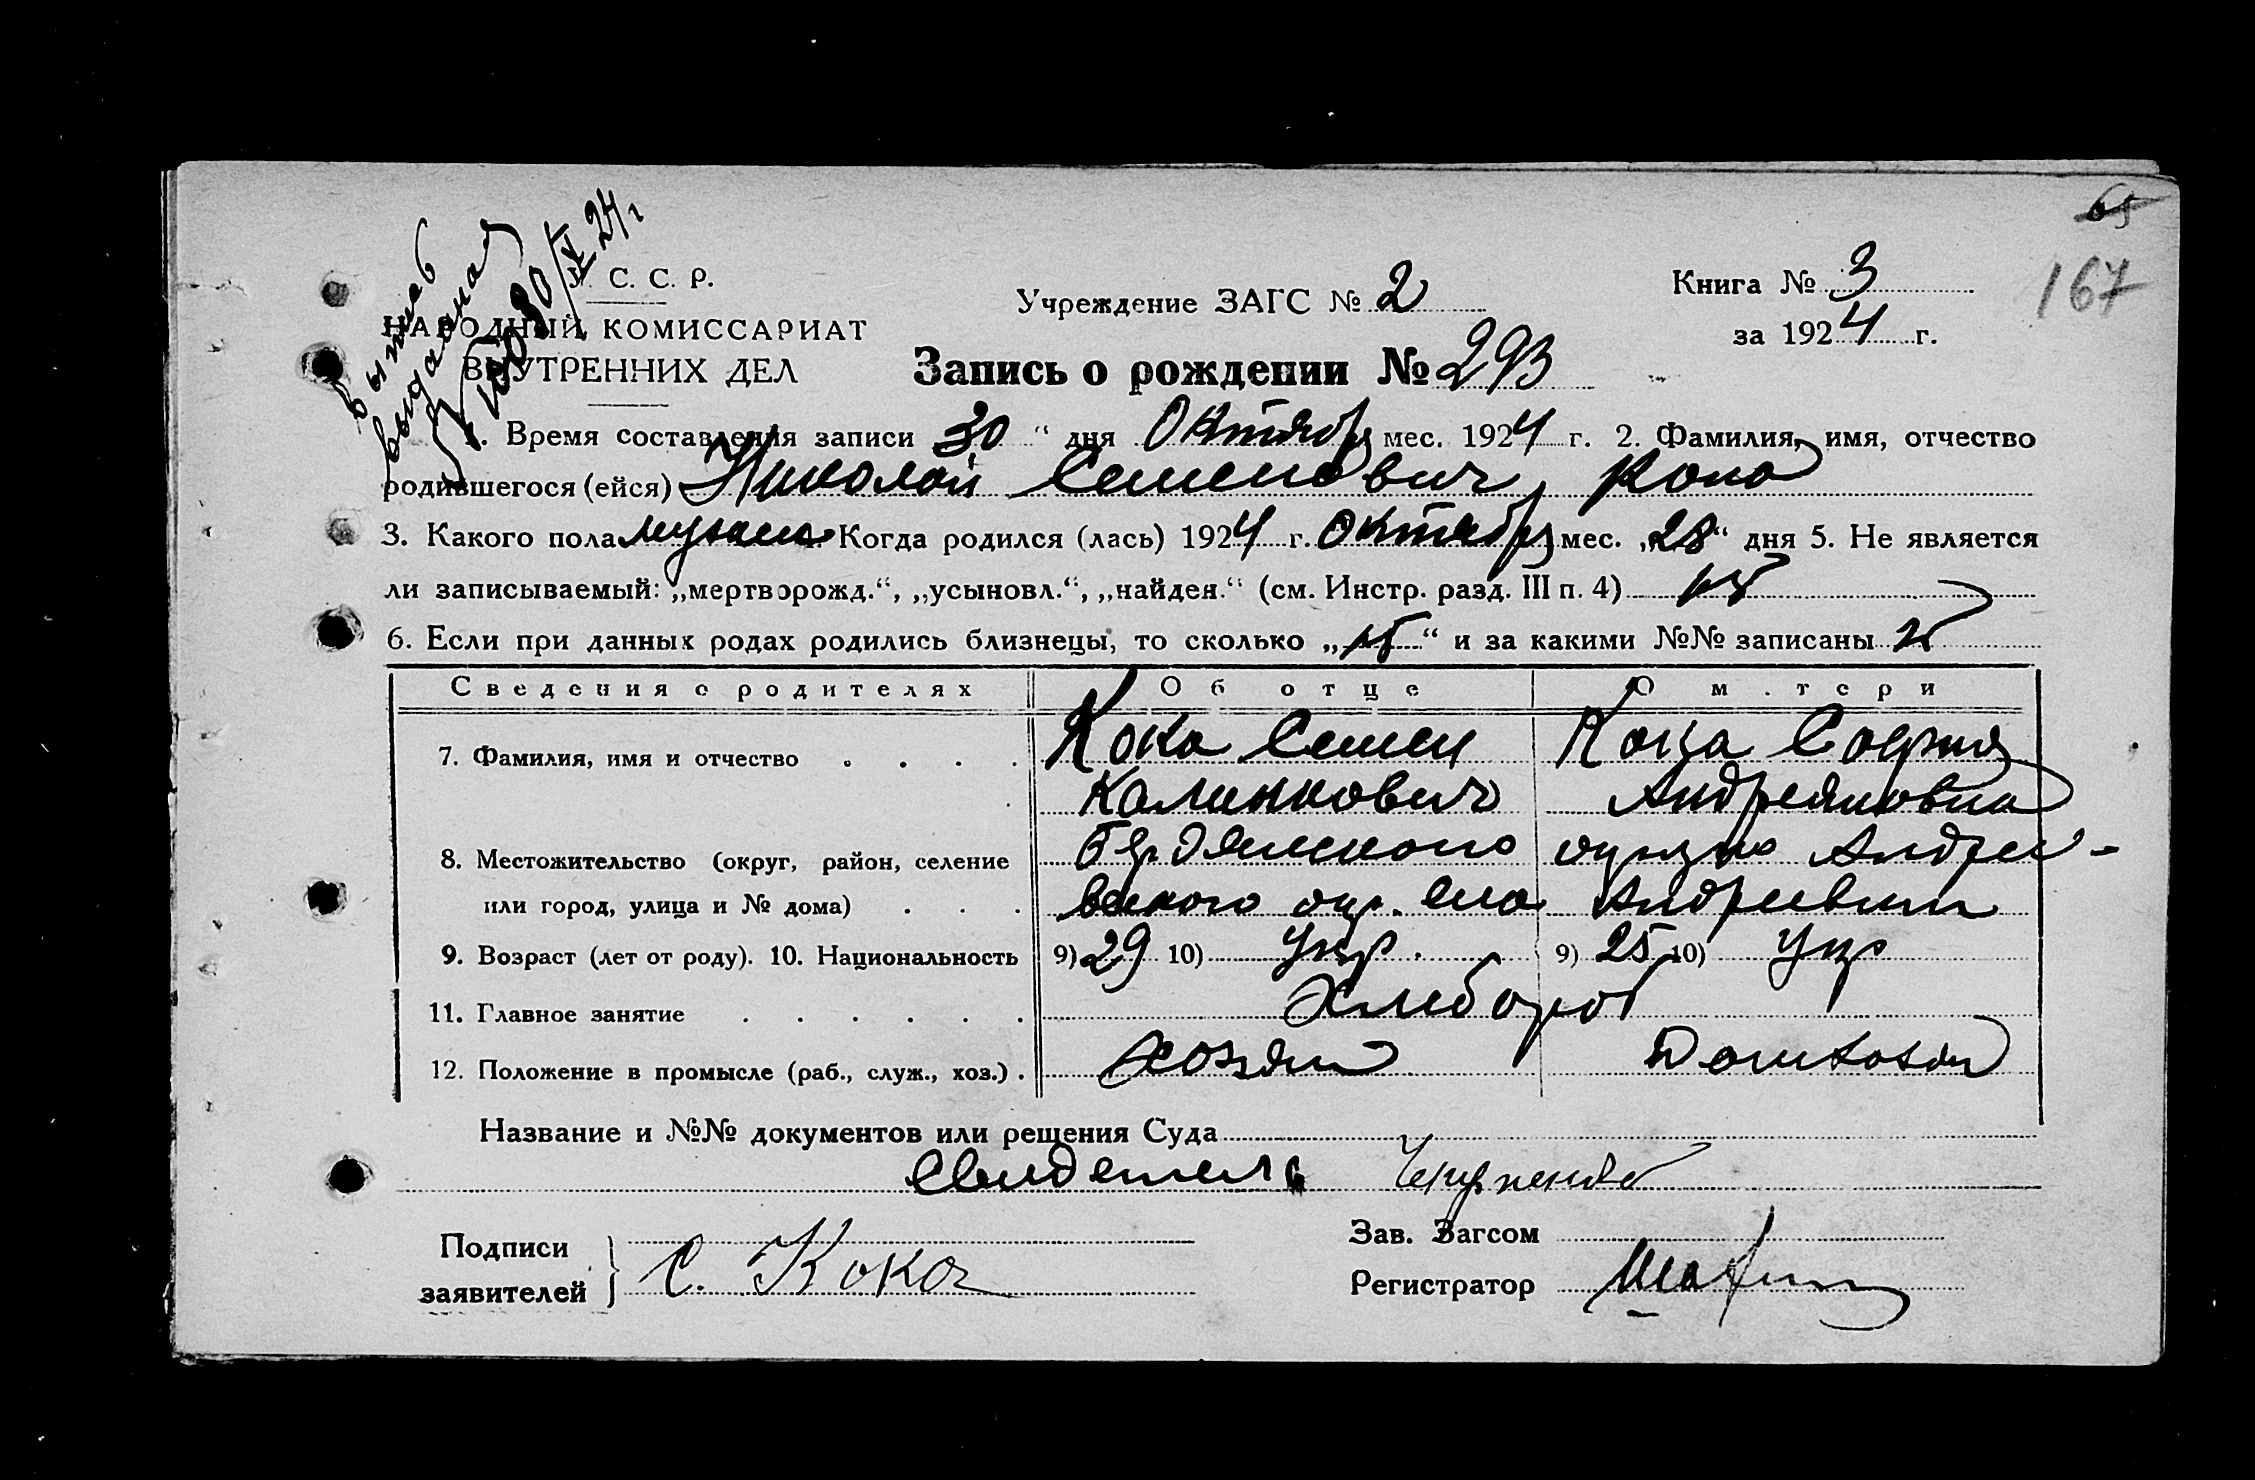 65
167
Выпись
выдана
30/X 24 г
У. С. С. Р.
НАРОДНЫЙ КОМИССАРИАТ
ВНУТРЕННИХ ДЕЛ
Учреждение ЗАГС № 2
Книга № 3
за 1924 г.
Запись о рождении № 293
1. Время составления записи 30 “ дня Октября мес. 1924 г. 2. Фамилия, имя, отчество
родившегося (ейся) Николай Семенович Кока
3. Какого пола мужск. Когда родился (лась) 1924 г. Октября мес. „28“ дня 5. Не является
ли записываемый: „мертворожд.“, „усыновл.“, „найден.“ (см. Инстр. разд. III п. 4)
6. Если при данных родах родились близнецы, то сколько „ “ и за какими №№ записаны
Сведения о родителях Об отце О матери
7. Фамилия, имя и отчество . . . . Кока Семен Кока София
Калинкович Андреяновна
8. Местожительство (округ, район, селение Бердянского округа Андре-
или город, улица и № дома) . . . вского окр. села Андреевки
9. Возраст (лет от роду). 10. Национальность 9) 29 10) Укр. 9) 25 10) Укр
11. Главное занятие . . . . . . Хлебороб
12. Положение в промысле (раб., служ., хоз.) . Хозяин Домхозяй
Название и №№ документов или решения Суда
Свидетель
Подписи
заявителей } С. Кока
Зав. Загсом
Регистратор